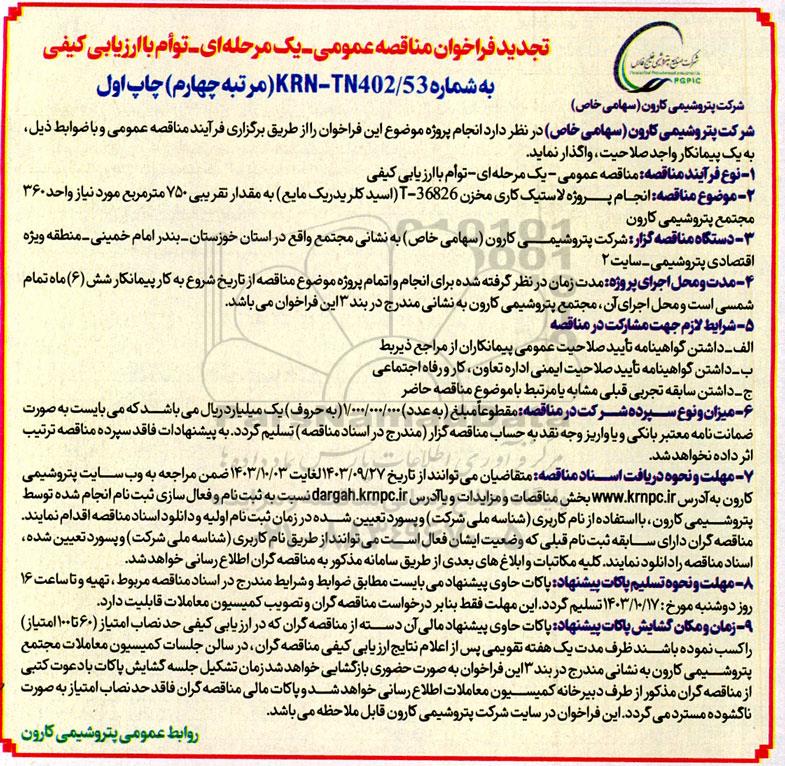 تجدید فراخوان مناقصه عمومی_یک مرحله‌ای_توأم با ارزیابی کیفی
به شماره KRN-TN402/53 (مرتبه چهارم) چاپ اول
شرکت صنایع پتروشیمی خلیج فارس
PGPIC
شرکت پتروشیمی کارون (سهامی خاص)
شرکت پتروشیمی کارون (سهامی خاص) در نظر دارد انجام پروژه موضوع این فراخوان را از طریق برگزاری فرآیند مناقصه عمومی و با ضوابط ذیل،
به یک پیمانکار واجد صلاحیت، واگذار نماید.
۱-نوع فرآیند مناقصه: مناقصه عمومی-یک مرحله ای-توأم با ارزیابی کیفی
۲-موضوع مناقصه: انجام پروژه لاستیک کاری مخزن T-36826 (اسید کلریدریک مایع) به مقدار تقریبی ۷۵۰ مترمربع مورد نیاز واحد ۳۶۰
مجتمع پتروشیمی کارون
۳-دستگاه مناقصه گزار: شرکت پتروشیمی کارون (سهامی خاص) به نشانی مجتمع واقع در استان خوزستان_بندر امام خمینی_منطقه ویژه
اقتصادی پتروشیمی_سایت ۲
۴-مدت و محل اجرای پروژه: مدت زمان در نظر گرفته شده برای انجام و اتمام پروژه موضوع مناقصه از تاریخ شروع به کار پیمانکار شش (۶) ماه تمام
شمسی است و محل اجرای آن، مجتمع پتروشیمی کارون به نشانی مندرج در بند ۳ این فراخوان می باشد.
۵-شرایط لازم جهت مشارکت در مناقصه
الف_داشتن گواهینامه تأیید صلاحیت عمومی پیمانکاران از مراجع ذیربط
ب_داشتن گواهینامه تأیید صلاحیت ایمنی اداره تعاون، کار و رفاه اجتماعی
ج_داشتن سابقه تجربی قبلی مشابه یا مرتبط با موضوع مناقصه حاضر
۶-میزان و نوع سپرده شرکت در مناقصه: مقطوعاً مبلغ (به عدد) ۱/۰۰۰/۰۰۰/۰۰۰ (به حروف) یک میلیارد ریال می باشد که می بایست به صورت
ضمانت نامه معتبر بانکی و یا واریز وجه نقد به حساب مناقصه گزار (مندرج در اسناد مناقصه) تسلیم گردد. به پیشنهادات فاقد سپرده مناقصه ترتیب
اثر داده نخواهد شد.
۷-مهلت و نحوه دریافت اسناد مناقصه: متقاضیان می توانند از تاریخ ۱۴۰۳/۰۹/۲۷ لغایت ۱۴۰۳/۱۰/۰۳ ضمن مراجعه به وب سایت پتروشیمی
کارون به آدرس www.krnpc.ir بخش مناقصات و مزایدات و یا آدرس dargah.krnpc.ir نسبت به ثبت نام و فعال سازی ثبت نام انجام شده توسط
پتروشیمی کارون، با استفاده از نام کاربری (شناسه ملی شرکت) و پسورد تعیین شده در زمان ثبت نام اولیه و دانلود اسناد مناقصه اقدام نمایند.
مناقصه گران دارای سابقه ثبت نام قبلی که وضعیت ایشان فعال است می توانند از طریق نام کاربری (شناسه ملی شرکت) و پسورد تعیین شده،
اسناد مناقصه را دانلود نمایند. کلیه مکاتبات و ابلاغ های بعدی از طریق سامانه مذکور به مناقصه گران اطلاع رسانی خواهد شد.
۸-مهلت و نحوه تسلیم پاکات پیشنهاد: پاکات حاوی پیشنهاد می بایست مطابق ضوابط و شرایط مندرج در اسناد مناقصه مربوط، تهیه و تا ساعت ۱۶
روز دوشنبه مورخ: ۱۴۰۳/۱۰/۱۷ تسلیم گردد. این مهلت فقط بنابر درخواست مناقصه گران و تصویب کمیسیون معاملات قابلیت دارد.
۹-زمان و مکان گشایش پاکات پیشنهاد: پاکات حاوی پیشنهاد مالی آن دسته از مناقصه گران که در ارزیابی کیفی حد نصاب امتیاز (۶۰ تا ۱۰۰ امتیاز)
را کسب نموده باشند ظرف مدت یک هفته تقویمی پس از اعلام نتایج ارزیابی کیفی مناقصه گران، در سالن جلسات کمیسیون معاملات مجتمع
پتروشیمی کارون به نشانی مندرج در بند ۳ این فراخوان به صورت حضوری بازگشایی خواهد شد زمان تشکیل جلسه گشایش پاکات با دعوت کتبی
از مناقصه گران مذکور از طرف دبیرخانه کمیسیون معاملات اطلاع رسانی خواهد شد و پاکات مالی مناقصه گران فاقد حد نصاب امتیاز به صورت
ناگشوده مسترد می گردد. این فراخوان در سایت شرکت پتروشیمی کارون قابل ملاحظه می باشد.
روابط عمومی پتروشیمی کارون